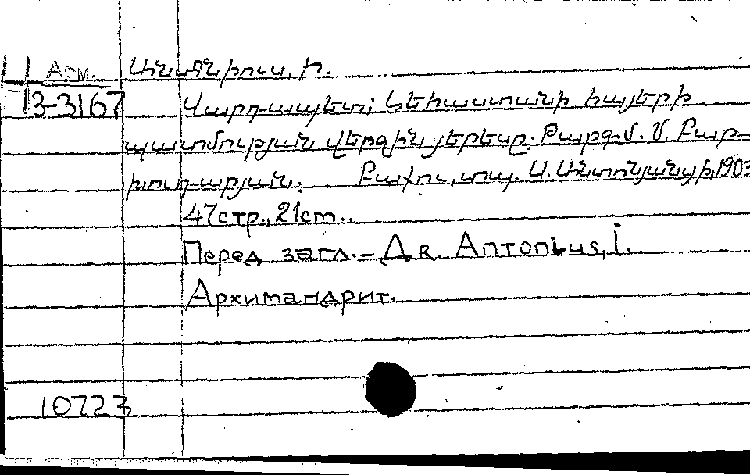 Арм. Անտոնիուս, Ի.
3-3167 Վարդապետ; Լեհաստանի հայերի
պատմության վերջին յերեսը. Թարգմ. Մ. Բար-
խուդարյան. Բաքու, տպ. Ա. Անտոնյանցի, 1903
47стр., 21ст..
Перед загл.-Др. Antonius, i.
Архимандрит.
10723